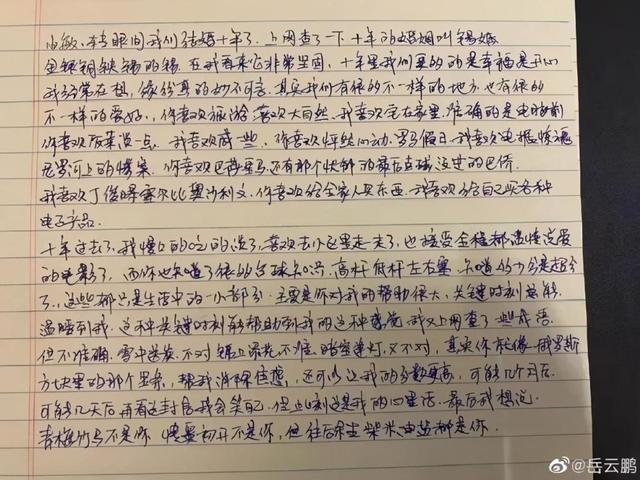 由敏,转眼间我们结婚十年了。上网查了一下十年的婚姻叫锡婚
金银铜铁锡的锡。在我看来它非常坚固,十年里我们更多的是幸福是开心
我经常在想,缘份真的妙不可言。其实我们有很多不一样的地方,也有很多
不一样的爱好,你喜欢旅游 喜欢大自然,我喜欢宅在家里,准确的是电脑前
你喜欢吃菜淡一点,我喜欢咸一些,你喜欢怦然心动,罗马假日,我喜欢电锯惊魂
尼罗河上的惨案,你喜欢巴黎 还有那个
我喜欢丁俊晖 塞尔比奥沙利文,你喜欢给全家人买东西,我喜欢给自己买各种
电子产品。
十年过去了,我慢慢的吃的淡了,喜欢去小区里走一走了,也接受全程都是情说爱
的电影了,而你也知道了很多台球知识,高杆低杆左右塞,知道的十分是超分
了,这些都只是生活中的一小部分,主要是你对我的帮助很大,关键时刻总能
温暖到我。这种关键时刻能帮助到我的这种感觉 我又上网查了一些成语
但不准确,雪中送炭,不对 锦上添花,不准 暗室逢灯,又不对,其实你就像俄罗斯
方块里的那个竖条,帮我消除焦虑,还可以让我的分数更高,可能几个月后
可能几天后再看这封信我会笑自己,但此时刻这是我的心里话,最后我想说,
青梅竹马不是你 情窦初开不是你,但往后余生柴米油盐都是你
@岳云鹏